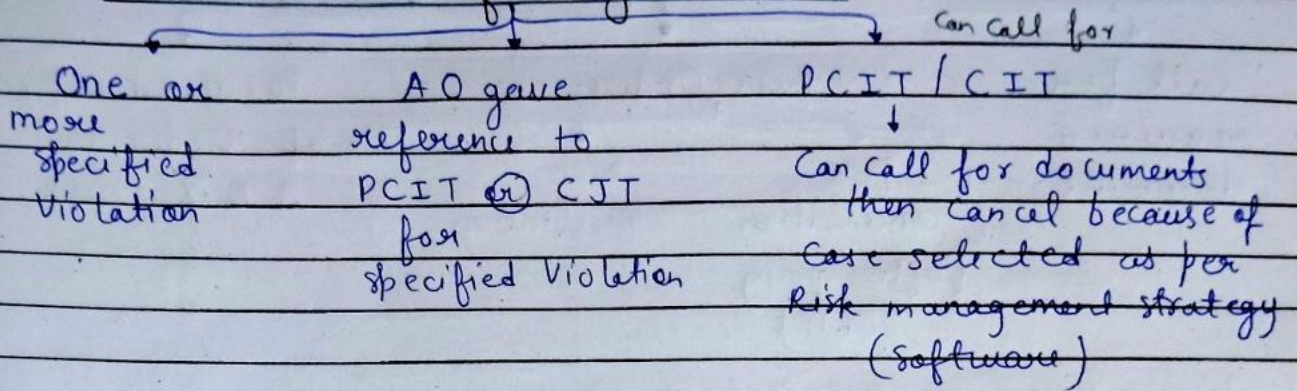 Can call for
One or
more
specified
violation
A O gave
reference to
PCIT or CIT
for
specified violation
PCIT / CIT
Can call for documents
then cancel because of
case selected as per
Risk management strategy
(software)